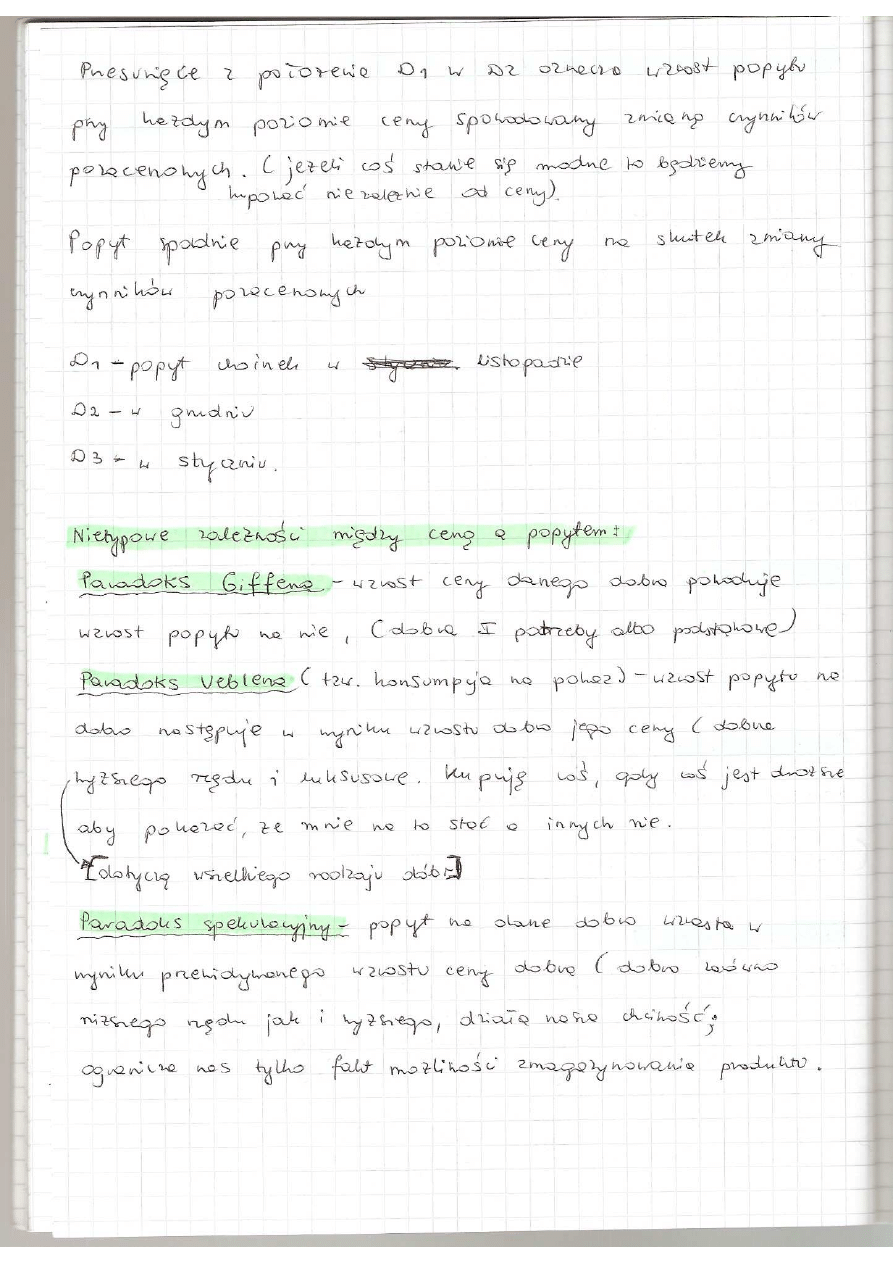 Przesunięcie z położenia D1 w D2 oznacza wzrost popytu
przy każdym poziomie ceny spowodowany zmianą czynników
pozacenowych. (jeżeli coś stanie się modne to będziemy
kupować niezależnie od ceny).
Popyt spadnie przy każdym poziomie ceny na skutek zmiany
czynników pozacenowych
D1 – popyt choinek w listopadzie
D2 – w grudniu
D3 – w styczniu.
Nietypowe zależności między ceną a popytem:
Paradoks Giffena – wzrost ceny danego dobra powoduje
wzrost popytu na nie, (dobra I potrzeby albo podstawowe)
Paradoks Veblena (tzw. konsumpcja na pokaz) – wzrost popytu na
dobro następuje w wyniku wzrostu dobra jego ceny (dobra
wyższego rzędu i luksusowe. Kupuję coś, gdy coś jest droższe
aby pokazać, że mnie na to stać a innych nie.
[dotyczą wszelkiego rodzaju dóbr]
Paradoks spekulacyjny – popyt na dane dobro wzrasta w
wyniku przewidywanego wzrostu ceny dobra (dobra zarówno
niższego rzędu jak i wyższego, działa nasza chciwość;
ogranicza nas tylko fakt możliwości zmagazynowania produktu.